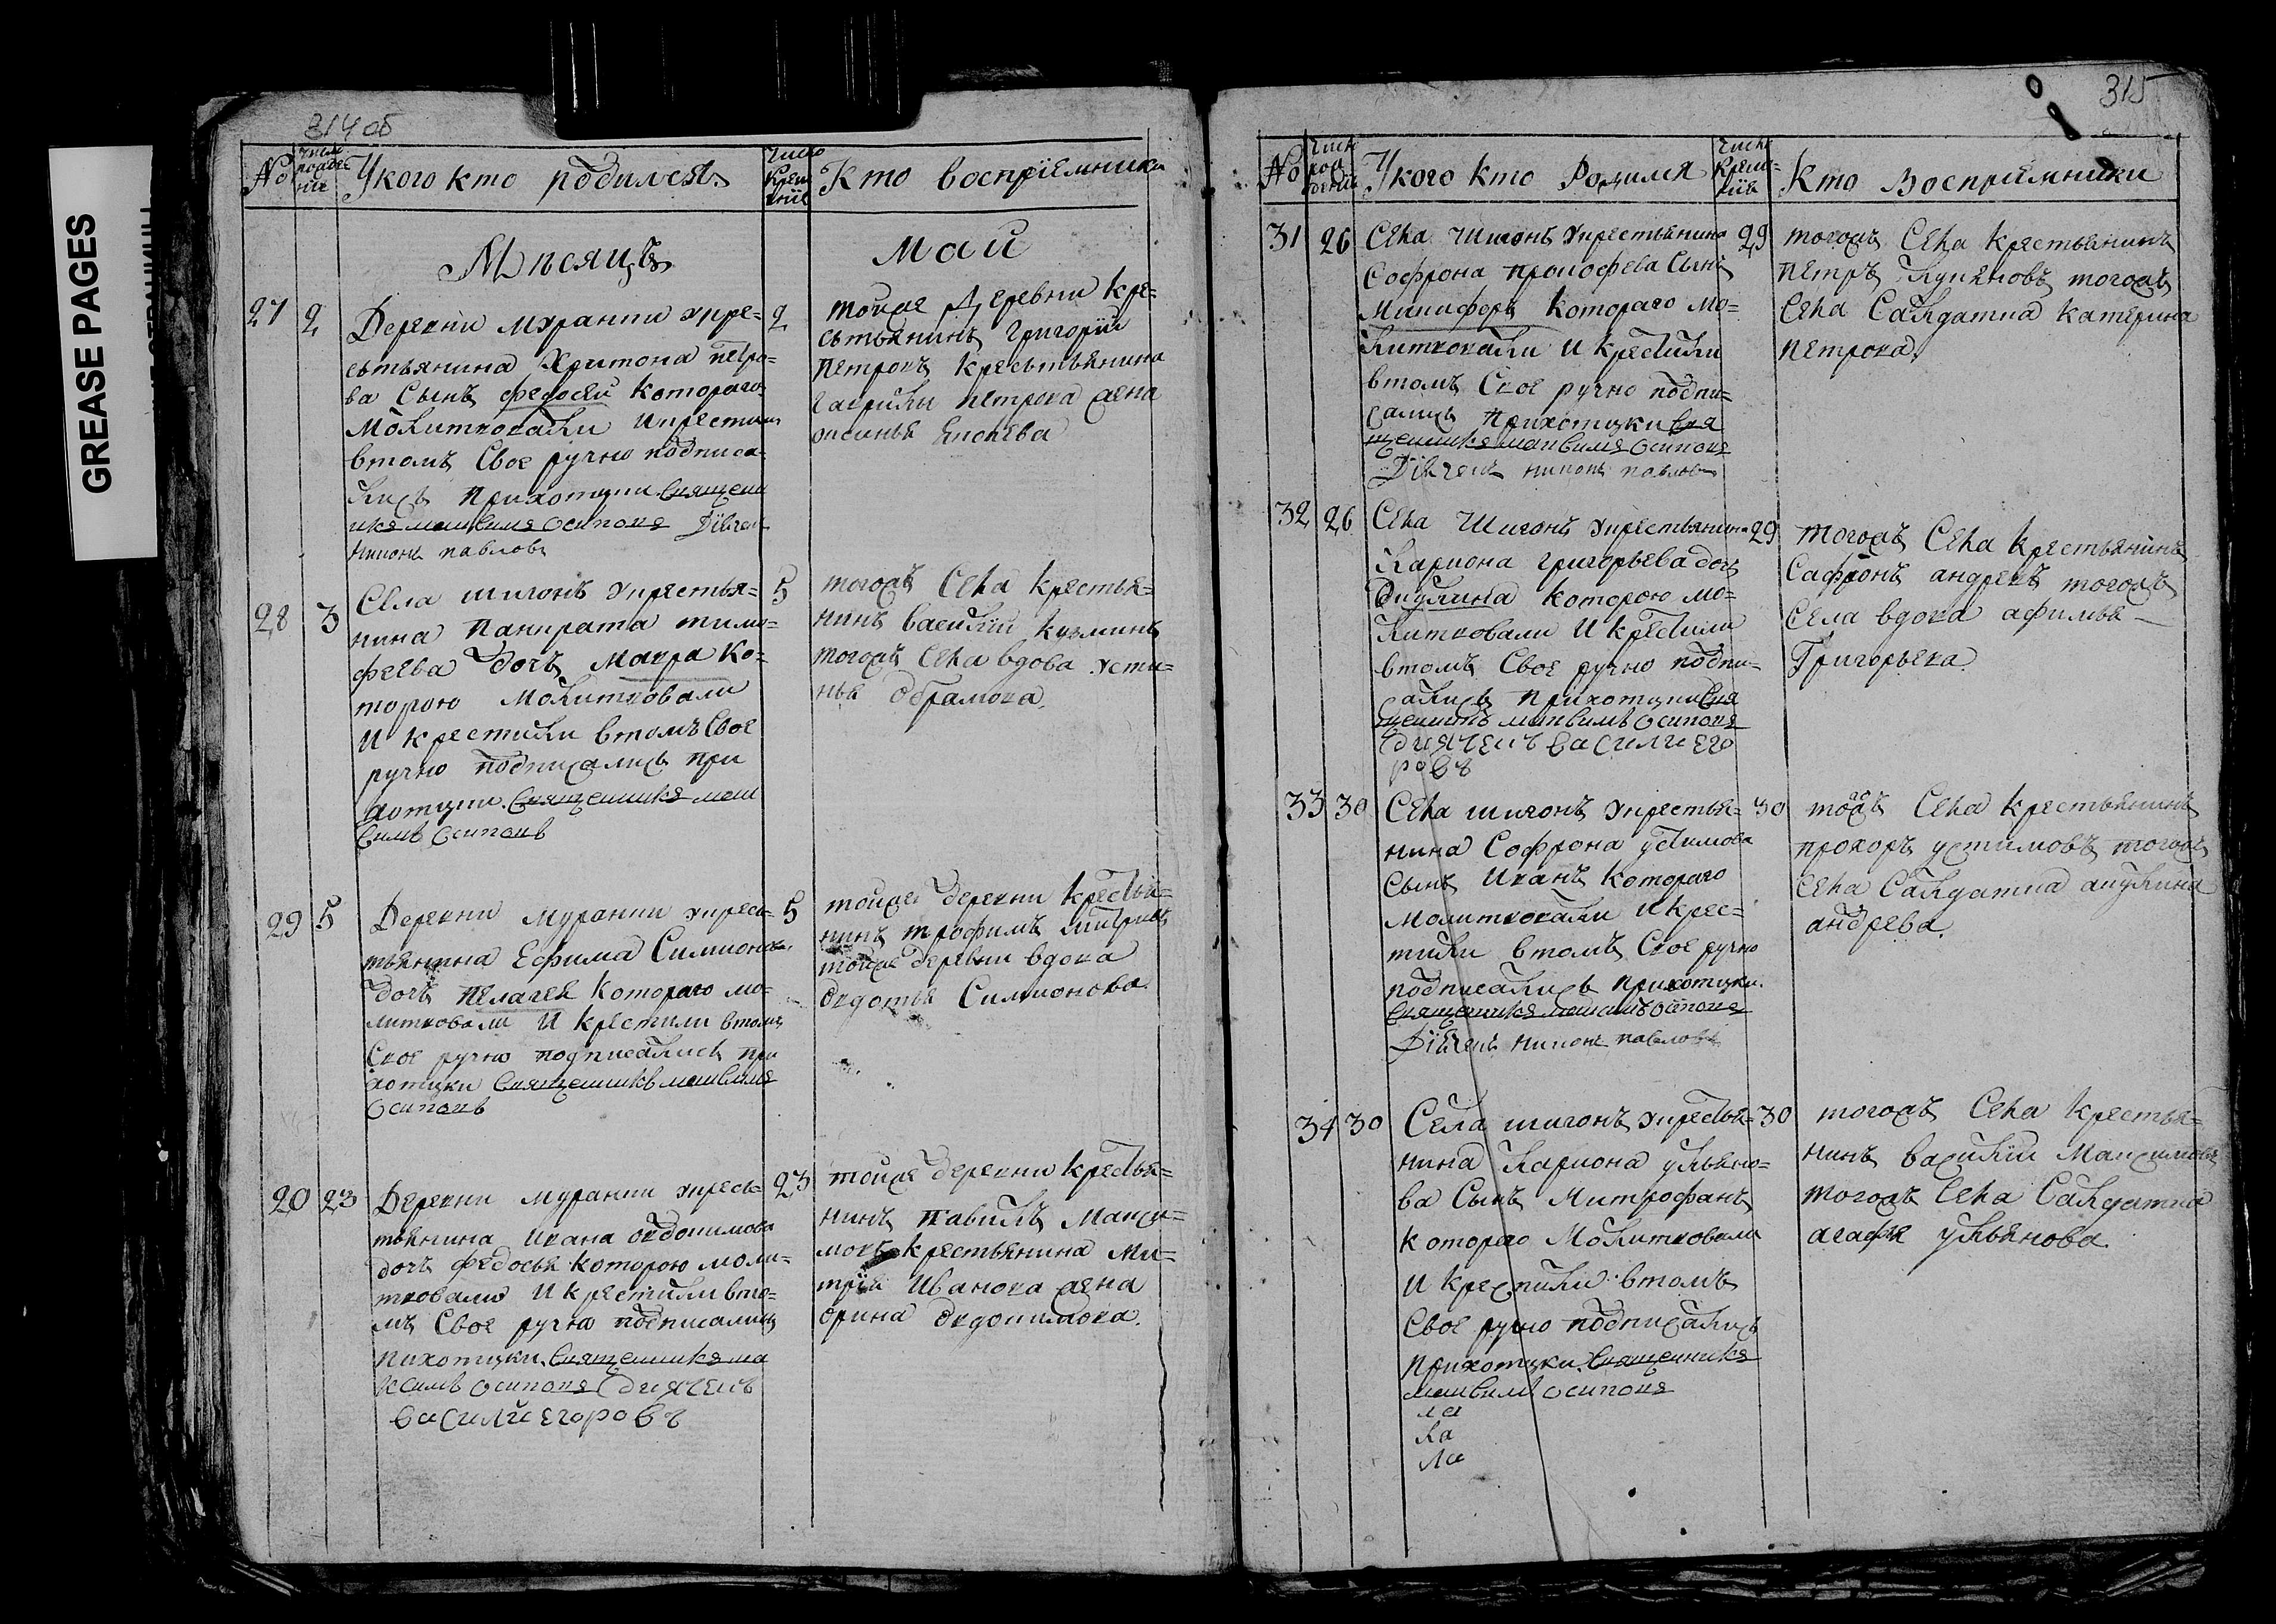 GREASE PAGES
314 об
No
число рожде нiе
У кого кто родился
число крещ ниё
Кто восприемники
Мѣсяцъ
май
27
2
Деревни Муранки укре=
стьянина Харитона петро=
ва Сынъ федосеи котораго
молитвовали икрестили
втомъ Свое ручно подписа=
лись Прихотцки Священ
никъ максимъ Осиповъ Дiячек
никонъ павловъ
2
тойже Деревни кре=
стьянинъ Григорiй
петровъ крестьянина
гаврилы петрова жена
28
3
Села шигонъ укрестья=
нина Панкрата тимо=
феева дочь Мавра ко=
торою молитвовали
и крестили втомъ Свое
ручно подписались при
хотцки Священникъ мак
симъ Осиповъ
5
тогожъ Села крестья=
нинъ василiй кузминъ
тогожъ Села вдова усти=
нья обрамова
29
5
Деревни Муранки укрес=
тьянина Ефима Симионова
дочь пелагея котораго мо=
литвовали и крестили втомъ
Свое ручно подписались при
хотцки Священникъ максимъ
Осиповъ
5
тойже деревни крестья=
нинъ трофимъ
тойже деревни вдова
овдотья Симионова
20
23
Деревни муранки укрес=
тьянина Ивана овдокимова
дочь федосья которою моли=
твовали и крестили вто=
мъ Свое ручно подписались
пихотцки Священникъ ма
ксимъ осиповъ диячекъ
василiй егоровъ
23
тойже деревни крестья=
нинъ павилъ Макси=
мовъ крестьянина ми=
трiя Иванова жена
орина овдокимова.
315
No
число рож дения
У кого кто родился
число креще= нiя
Кто восприемники
31
26
Села шигонъ укрестьянина
Софрона прокофева Сынъ
Никифоръ котораго мо=
литвовали и крестили
втомъ Свое ручно подпи=
сались Прихотцки Свя
щенникъ максимъ Осиповъ
Дiячекъ никонъ павловъ
29
тогожъ Села крестьянинъ
петръ лукьяновъ тогожъ
Села Салдатка катерина
петрова.
32
26
Села Шигонъ укрестьянина
Лариона григорьева дочь
Акулина которою мо=
литвовали и крестили
втомъ Свое ручно подпи=
сались Прихотцки Свя
щенникъ максимъ осиповъ
диячекъ василiй его
ровъ
29
тогожъ Села крестьянинъ
Сафронъ андревъ тогожъ
Села вдова афимья
Григорьева.
33
30
Села шигонъ укрестья=
нина Софрона устимова
Сынъ Иванъ котораго
молитвовали и крес=
тили втомъ Свое ручно
подписались прихотцки.
Священникъ максимъ осиповъ
Дiячекъ никонъ павловъ
30
тогожъ Села крестьянинъ
прохоръ устимовъ тогожъ
Села Салдатка акулина
андрева.
34
30
Села шигонъ укрестья=
нина Лариона ульяно=
ва Сынъ Митрофанъ
котораго молитвовали
и крестили втомъ
Свое ручно подписались
Прихотцки. Священникъ
максимъ осиповъ
ла
ла
ла
30
тогожъ Села крестья=
нинъ василiй Максимовъ
тогожъ Села Салдатка
агафя ульянова.